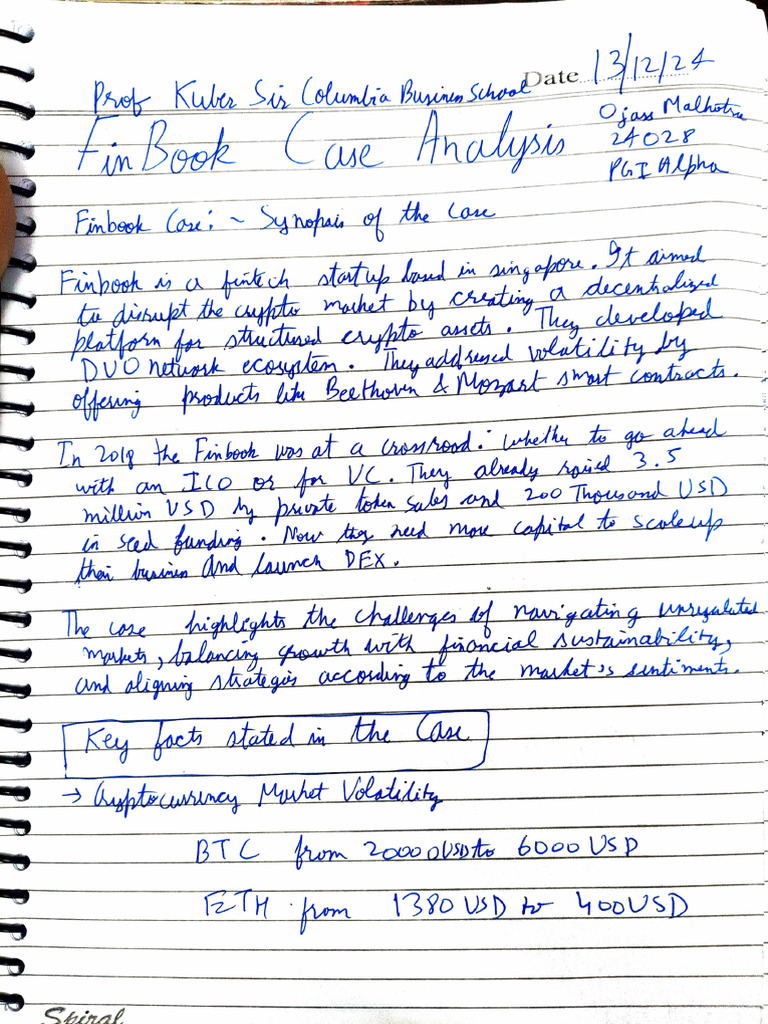 Date 13/12/24
Prof Kuber Sir Columbia Business School
Ojass Malhotra
24028
PGI Alpha
FinBook Case Analysis
Finbook Case: ~ Synopsis of the case
Finbook is a fintech startup based in singapore. It aimed
to disrupt the crypto market by creating a decentralized
platform for structured crypto assets. They developed
DUO network ecosystem. They addressed volatility by
offering products like Beethoven & Mozart smart contracts.
In 2018 the Finbook was at a crossroad: whether to go ahead
with an ICO or for VC. They already raised 3.5
million USD by private token sales and 200 Thousand USD
in seed funding. Now they need more capital to scaleup
their business and launch DEX.
The case highlights the challenges of navigating unregulated
markets, balancing growth with financial sustainability,
and aligning strategies according to the market's sentiments.
Key facts stated in the Case
→ Cryptocurrency Market Volatility
BTC from 20000USD to 6000 USD
ETH from 1380 USD to 400USD
Spiral